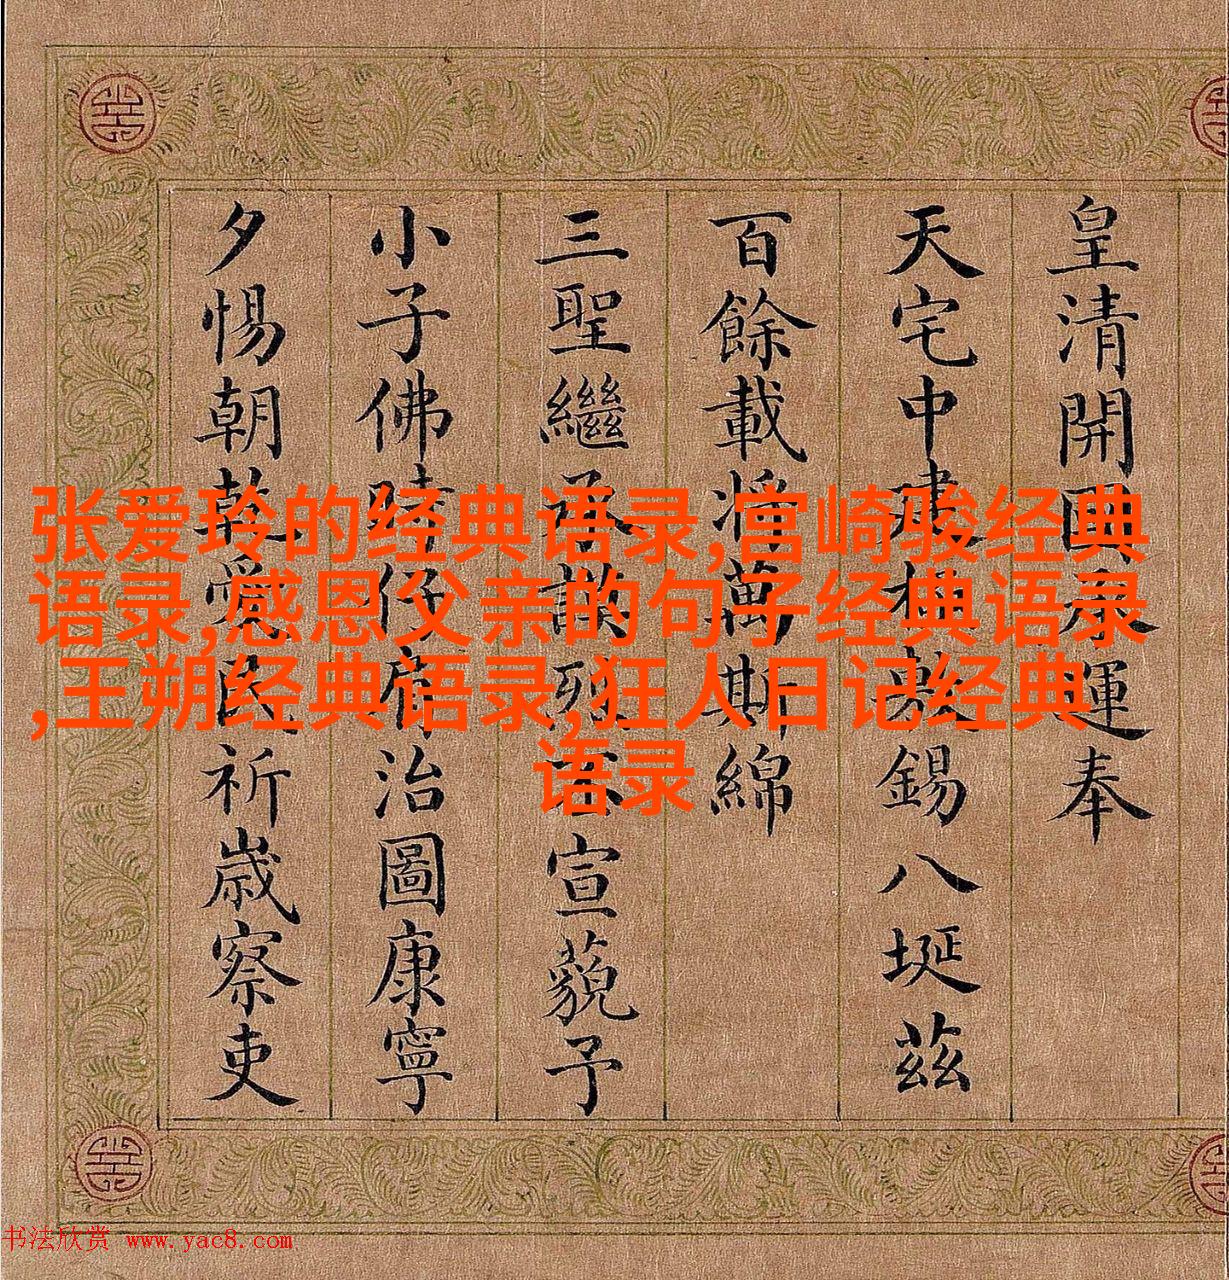 皇清開國承運奉
天宅中建極敷錫八埏茲
百餘載將萬斯綿
三聖繼承謨烈丕宣藐予
小子佛時仔肩治圖康寧
夕惕朝乾愛民祈歲察吏
张爱玲的经典语录,宫崎骏经典
语录,感恩父亲的句子经典语录
,王朔经典语录,狂人日记经典
语录
书法欣赏 www.yac8.com